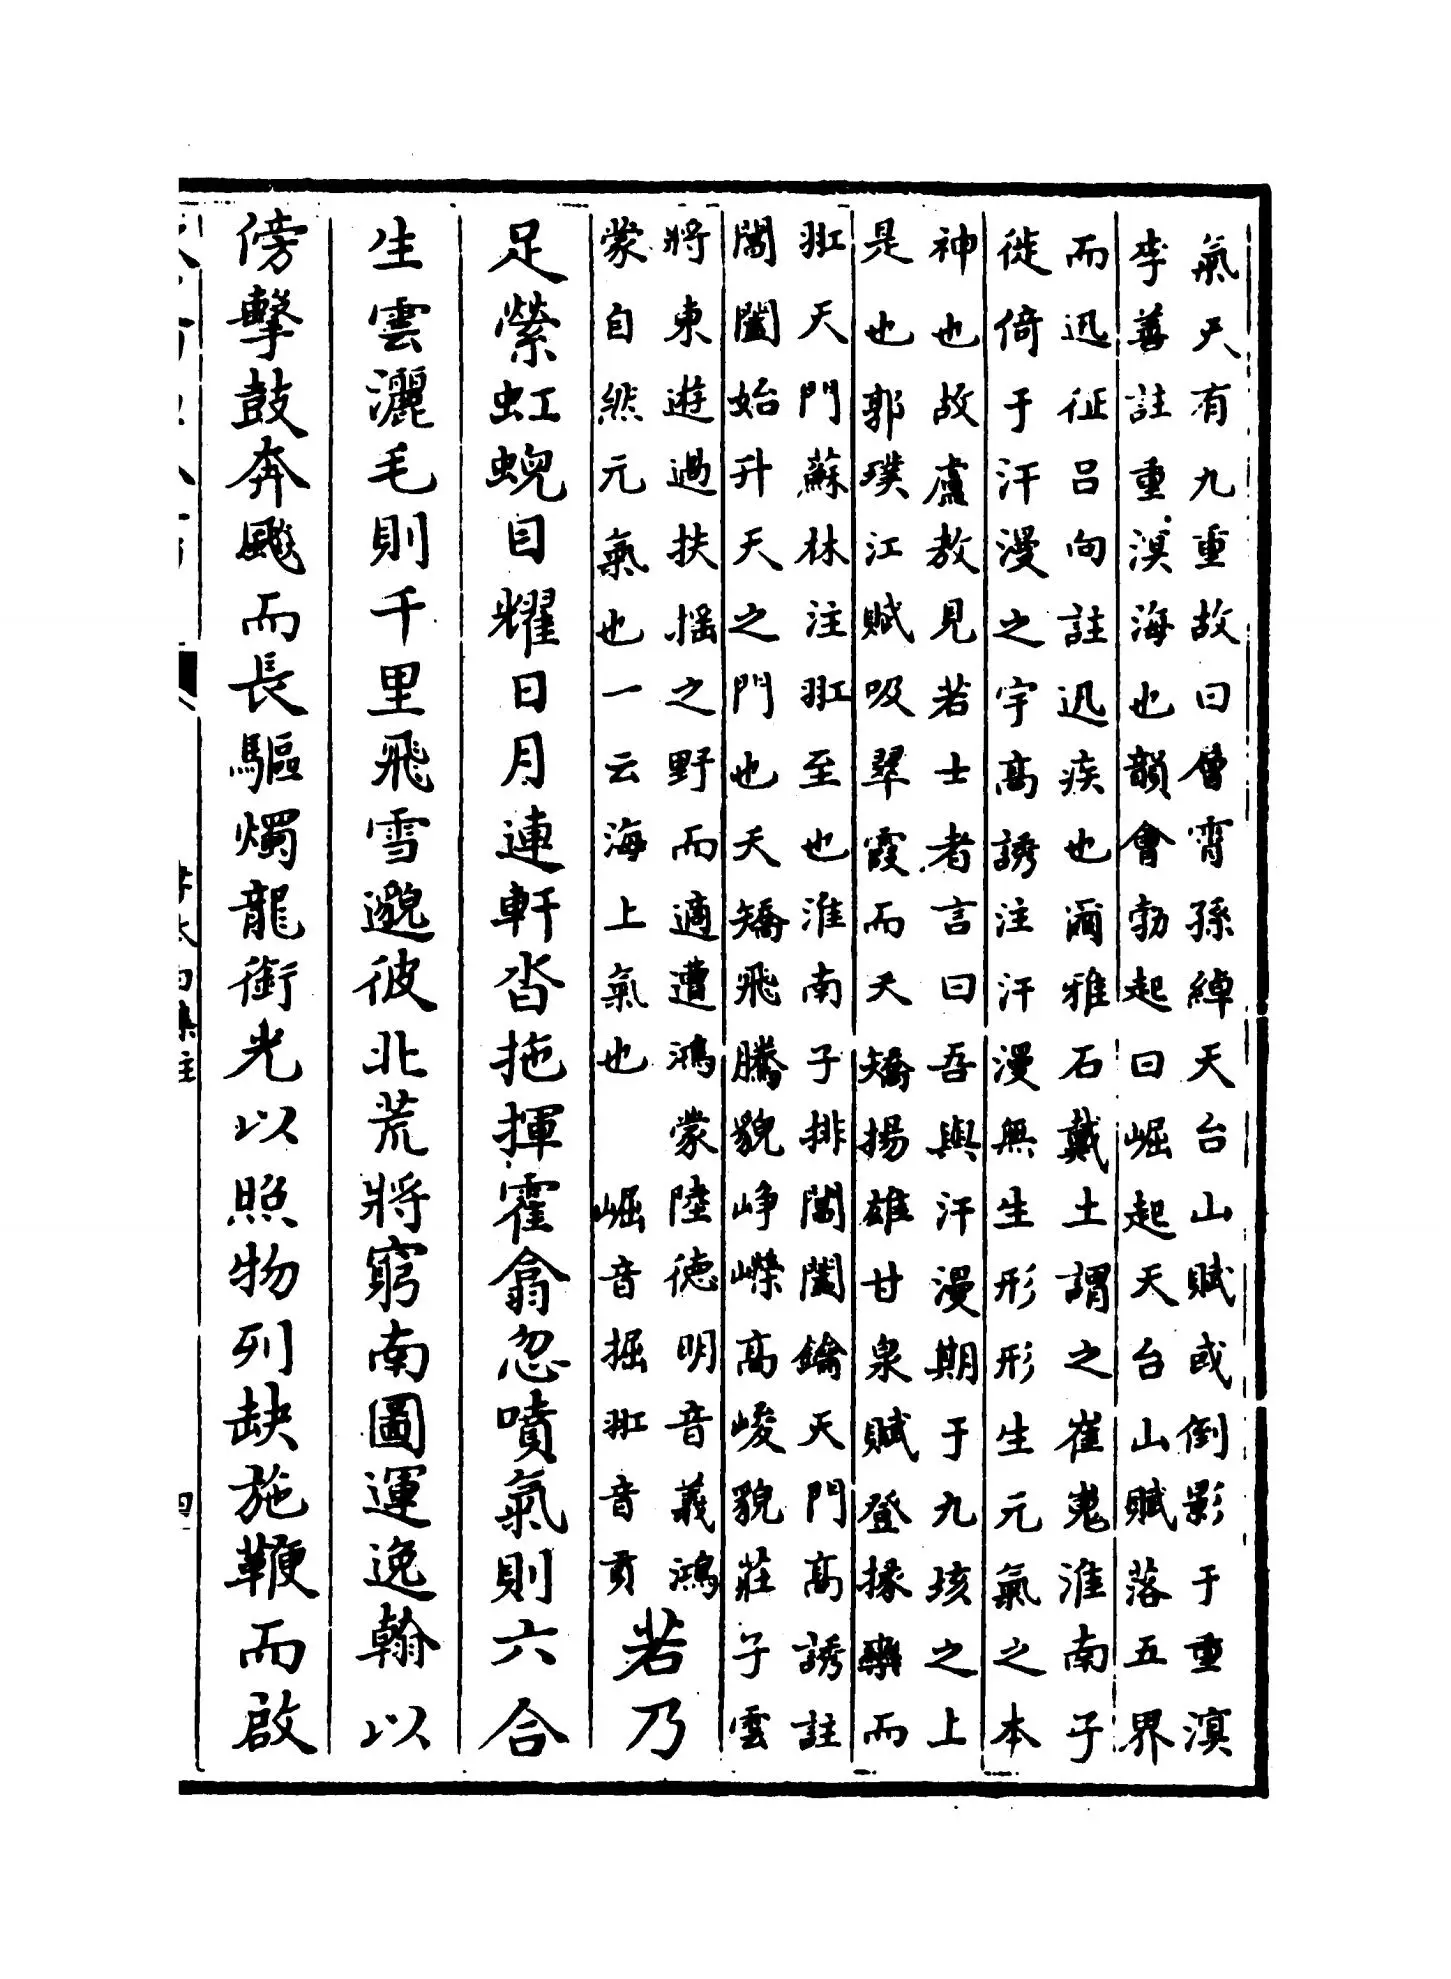 氣天有九重故曰層霄孫綽天台山賦或倒影于重溟
李善註重溟海也韻會勃起曰崛起天台山賦落五界
而迅征呂向註迅疾也爾雅石戴土謂之崔嵬淮南子
徙倚于汗漫之宇高誘注汗漫無生形形生元氣之本
神也故盧敖見若士者言曰吾與汗漫期于九垓之上
是也郭璞江賦吸翠霞而夭矯揚雄甘泉賦登椽欒而
羾天門蘇林注羾至也淮南子排閶闔鑰天門高誘註
閶闔始升天之門也夭矯飛騰貌崢嶸高峻貌莊子雲
將東遊過扶搖之野而適遭鴻蒙陸德明音義鴻
蒙自然元氣也一云海上氣也 崛音掘羾音貢
若乃
足縈虹蜺目耀日月連軒沓拖揮霍翕忽噴氣則六合
生雲灑毛則千里飛雪邈彼北荒將窮南圖運逸翰以
傍擊鼓奔飈而長驅燭龍銜光以照物列缺施鞭而啟
李太白集註
四